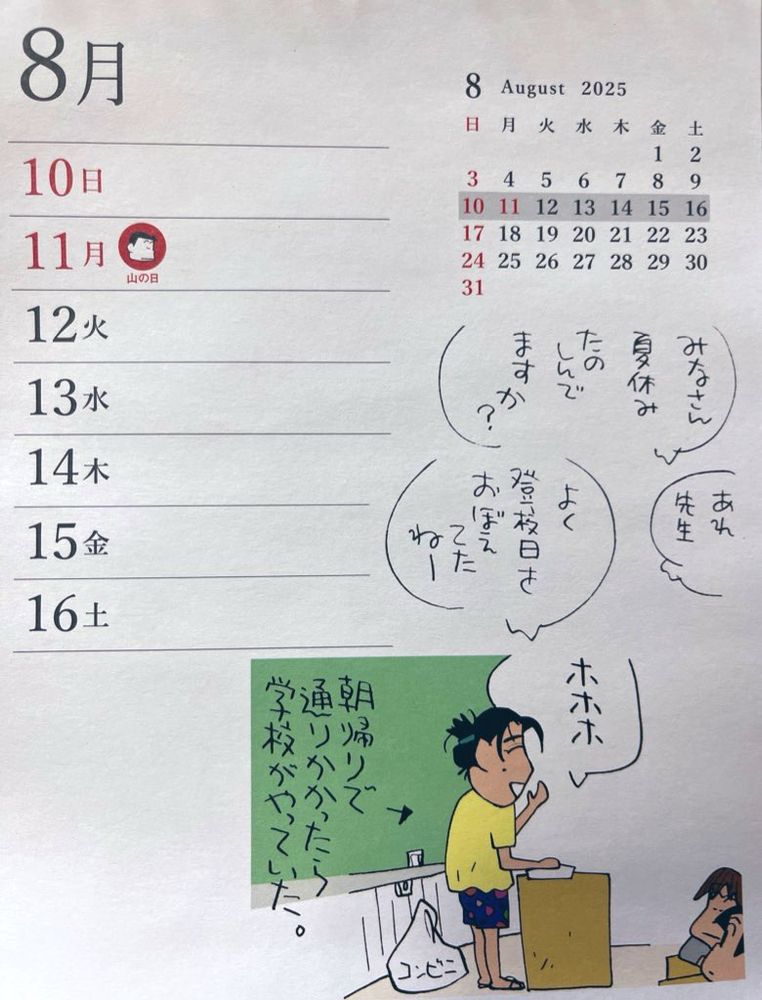 8月
10日
11月
山の日
12火
13水
14木
15金
16土
8 August 2025
日 月 火 水 木 金 土
1 2
3 4 5 6 7 8 9
10 11 12 13 14 15 16
17 18 19 20 21 22 23
24 25 26 27 28 29 30
31
みなさん
夏休み
たの
しんで
ますか
?
あれ
先生
よく
登校日を
おぼえ
てた
ねー
ホホホ
朝帰りで
通りかかったら
学校がやっていた。
コンビニ